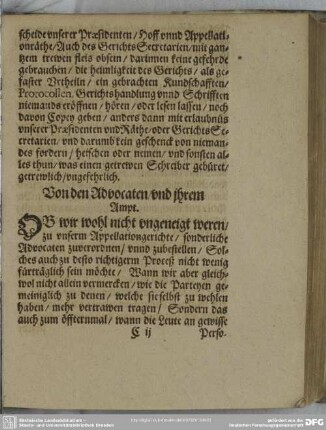 scheide vnserer Præsidenten / Hoff vnnd Appellati-
onräthe / Auch des Gerichts Secretarien / mit gan-
tzem trewen fleis obsein / darinnen keine gefehrde
gebrauchen / die heimligkeit des Gerichts / als ge-
faster Vrtheiln / ein gebrachten Kundschafften /
Protocollen, Gerichtshandlung vnnd Schrifften
niemands eröffnen / hören / oder lesen lassen / noch
davon Copey geben / anders dann mit erlaubnüs
vnserer Præsidenten vnd Räthe / oder Gerichts Se-
cretarien / vnd darumb kein geschenck von nieman-
des fordern / heischen oder nemen / vnd sonsten al-
les thun / was einen getrewen Schreiber gebüret /
getrewlich / vngefehrlich.
Von den Advocaten / vnd ihrem
Ampt.
OB wir wohl nicht vngeneigt weren /
zu vnserm Appellationgerichte / sonderliche
Advocaten zuverordnen / vnnd zubestellen / Sol-
ches auch zu desto richtigerm Proceß nicht wenig
fürträglich sein möchte / Wann wir aber gleich-
wol nicht allein vermercken / wie die Parteyen ge-
meiniglich zu denen / welche sie selbst zu wehlen
haben / mehr vertrawen tragen / Sondern das
auch zum öffternmal / wann die Leute an gewisse
C ij Perso-